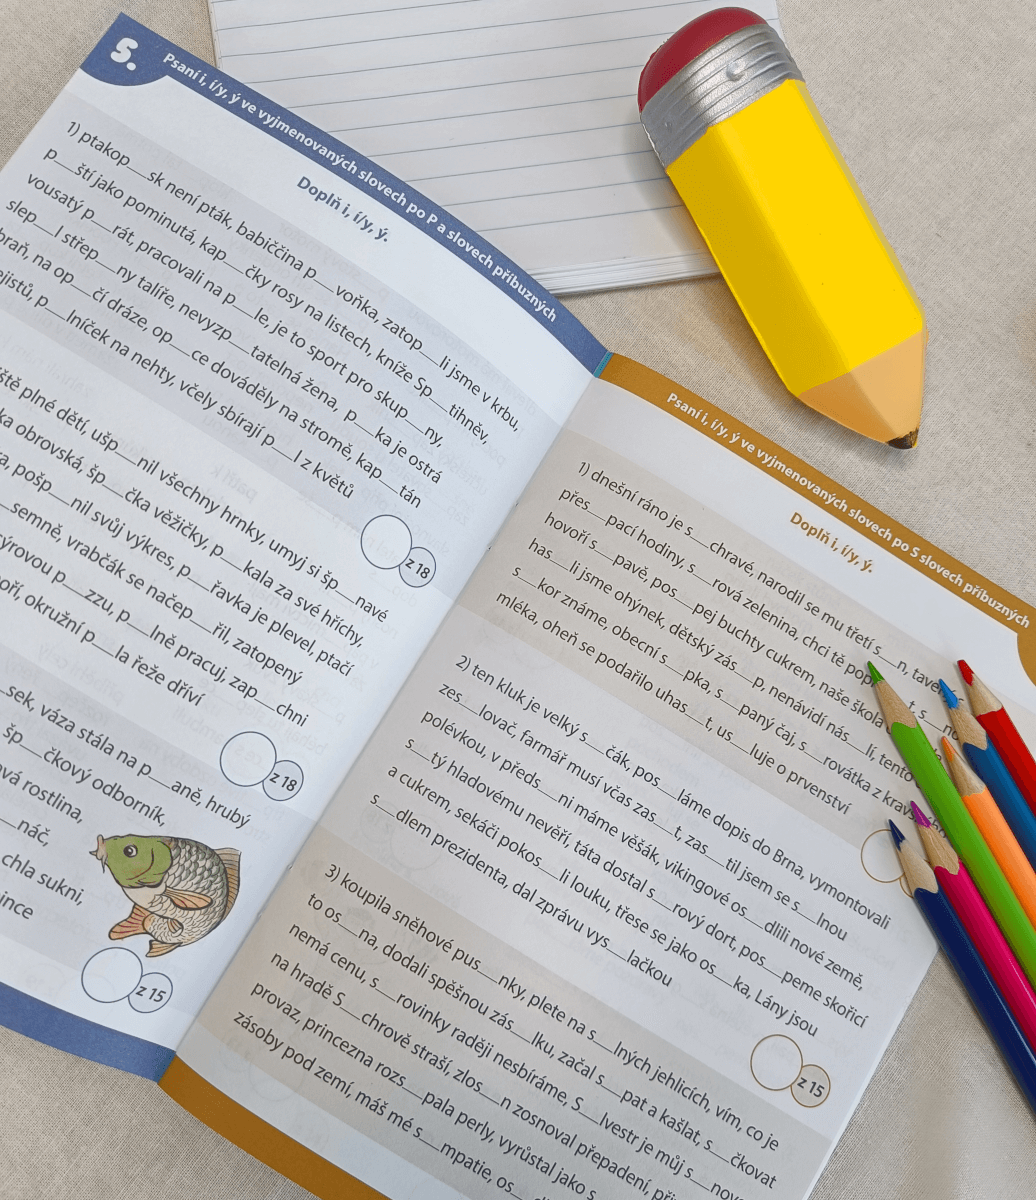 5.
Psaní i, í/y, ý ve vyjmenovaných slovech po P a slovech příbuzných
Doplň i, í/y, ý.
1) ptakop__sk není pták, babiččina p__voňka, zatop__li jsme v krbu,
p__ští jako pominutá, kap__čky rosy na listech, kníže Sp__tihněv,
vousatý p__rát, pracovali na p__le, je to sport pro skup__ny,
slep__l střep__ny talíře, nevyzp__tatelná žena, p__ka je ostrá
braň, na op__čí dráze, op__ce dováděly na stromě, kap__tán
p__lníček na nehty, včely sbírají p__l z květů
z 18
plné dětí, ušp__nil všechny hrnky, umyj si šp__navé
obrovská, šp__čka věžičky, p__kala za své hříchy,
pošp__nil svůj výkres, p__řavka je plevel, ptačí
__semně, vrabčák se načep__řil, zatopený
p__zzu, p__lně pracuj, zap__chni
okružní p__la řeže dříví
z 18
__sek, váza stála na p__aně, hrubý
šp__čkový odborník,
rostlina,
__náč,
sukni,
z 15
Psaní i, í/y, ý ve vyjmenovaných slovech po S slovech příbuzných
Doplň i, í/y, ý.
1) dnešní ráno je s__chravé, narodil se mu třetí s__n,
přes__pací hodiny, s__rová zelenina, chci tě
hovoří s__pavě, pos__pej buchty cukrem, naše škola
has__li jsme ohýnek, dětský zás__p, nenávidí nás__lí, tento
s__kor známe, obecní s__pka, s__paný čaj, s__rovátka z
mléka, oheň se podařilo uhas__t, us__luje o prvenství
2) ten kluk je velký s__čák, pos__láme dopis do Brna, vymontovali
zes__lovač, farmář musí včas zas__t, zas__til jsem se s__lnou
polévkou, v předs__ni máme věšák, vikingové os__dlili nové země,
s__tý hladovému nevěří, táta dostal s__rový dort, pos__peme skořicí
a cukrem, sekáči pokos__li louku, třese se jako os__ka, Lány jsou
s__dlem prezidenta, dal zprávu vys__lačkou
z 15
3) koupila sněhové pus__nky, plete na s__lných jehlicích, vím, co je
to os__na, dodali spěšnou zás__lku, začal s__pat a kašlat, s__čkovat
nemá cenu, s__rovinky raději nesbíráme, S__lvestr je můj s__
na hradě S__chrově straší, zlos__n zosnoval přepadení,
provaz, princezna rozs__pala perly, vyrůstal jako s
zásoby pod zemí, máš mé s__mpatie, os__